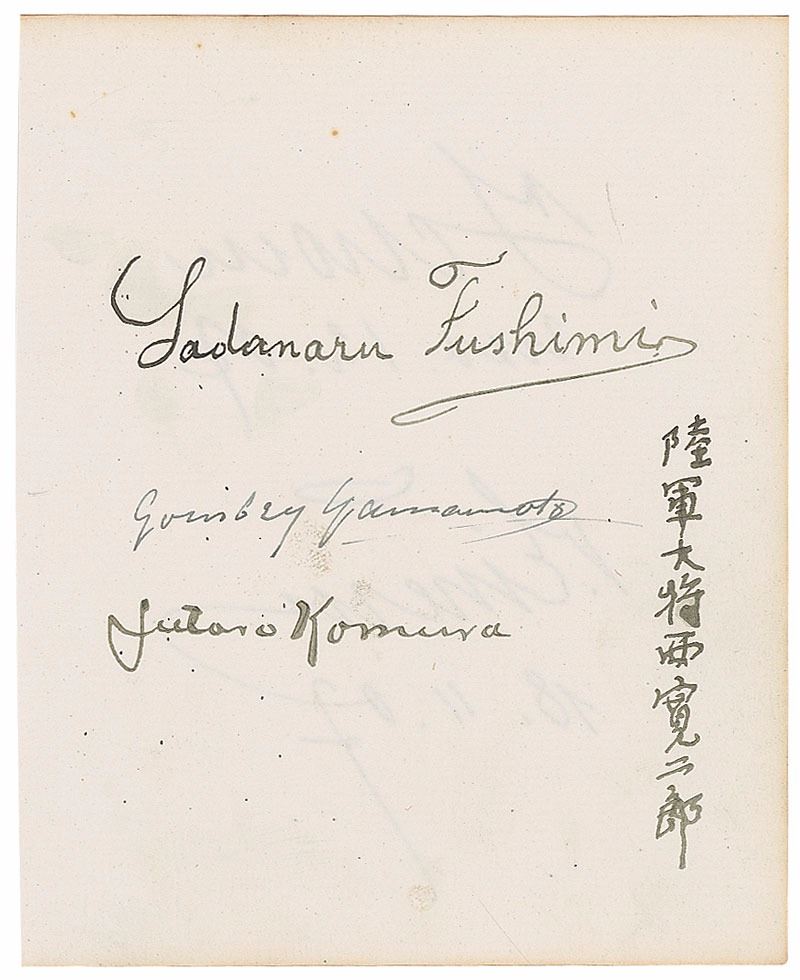 Sadanaru Fushimi
Gonsbey Yamamoto
Jutaro Komura
陸軍大将西寛二郎